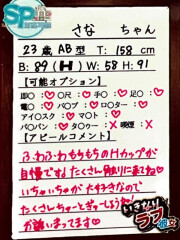 SP
さな ちゃん
23歳 AB型 T:158cm
B:89(H) W:58 H:91
【可能オプション】
即○:♡ ○尺:♡ 手○:♡ 足○:♡
電○:♡ バ○ブ:♡ ロ○ター:♡
アイ○スク:♡ マ○ト:♡
パ○パン:♡ タ○ー:✕ 喫煙:✕
【アピールコメント】
ふわふわもちもちのHカップが
自慢です♡たくさん触りに来てね♡
いちゃいちゃが大好きなので
たくさんちゅーとぎゅーしようね♡
お誘いまってます♡
いきなり
ラブ彼女